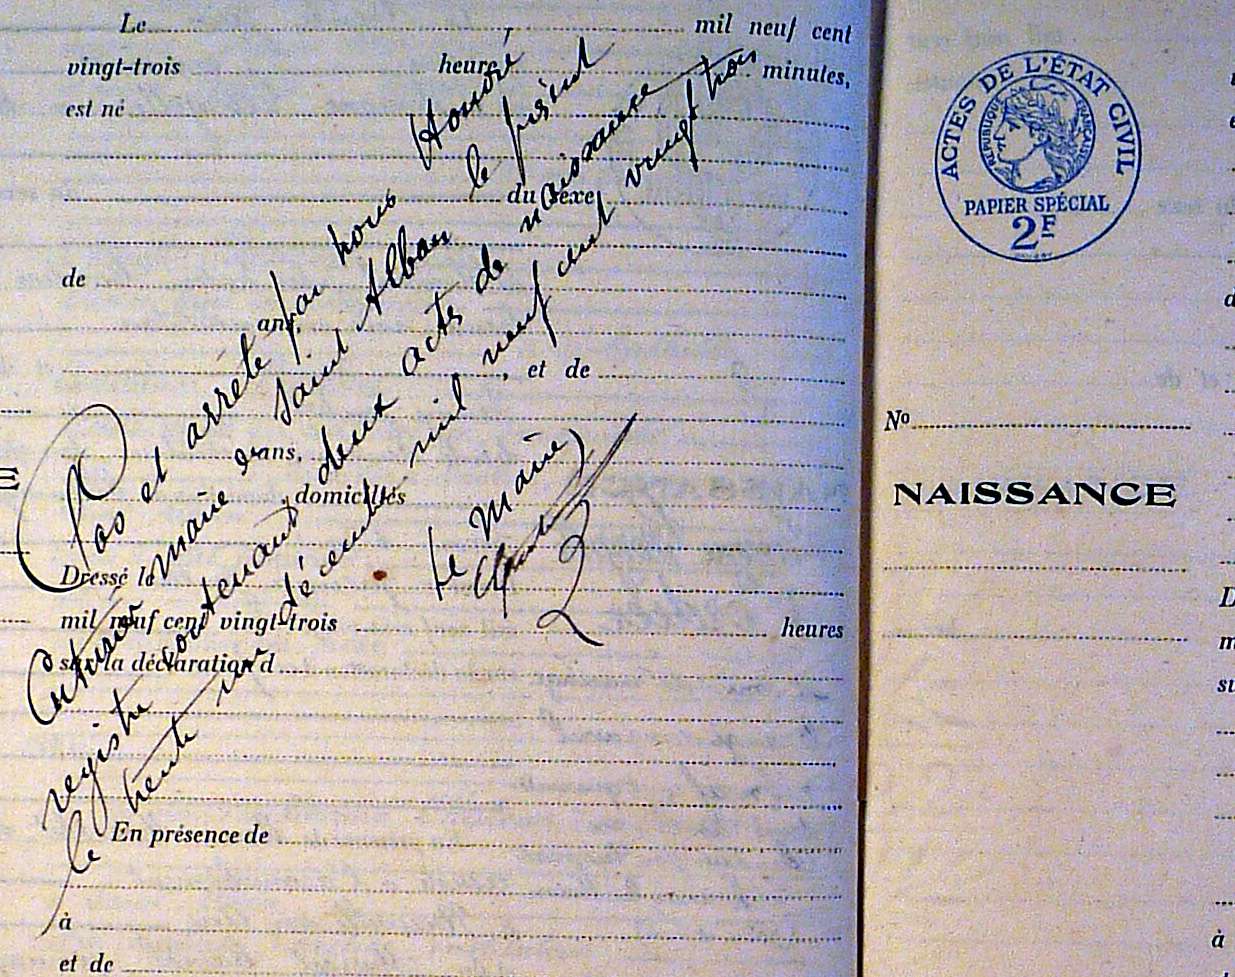 Le mil neuf cent
vingt-trois heure minutes,
est né
du sexe
de
ans,
, et de
ans,
, domiciliés
Dressé le
mil neuf cent vingt-trois heures
sur la déclaration d
En présence de
à
et de
Clos et arrêté par nous Honoré
maire de Saint Alban le présent
registre contenant deux actes de naissance
le trente un décembre mil neuf cent vingt trois
Le Maire
ACTES DE L'ÉTAT CIVIL
RÉPUBLIQUE FRANÇAISE
PAPIER SPÉCIAL
2F
No
NAISSANCE
E
à